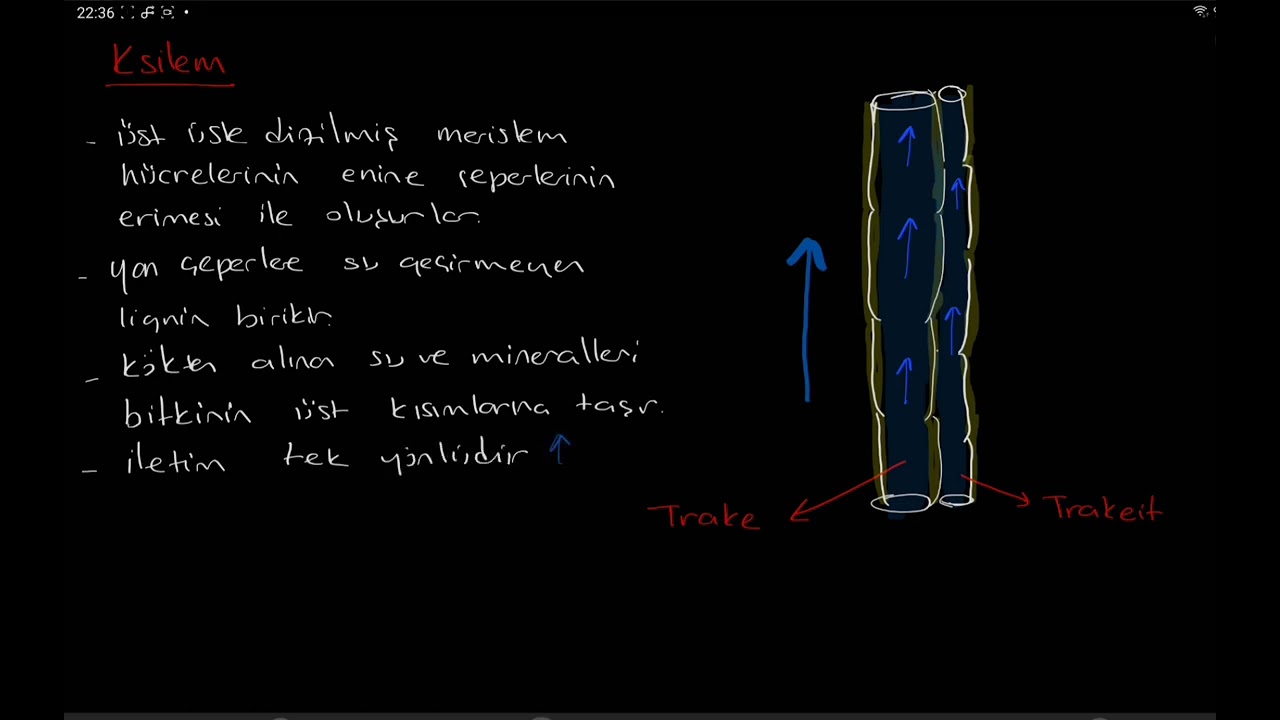 22:36
Ksilem
- üst üste dizilmiş meristem
hücrelerinin enine çeperlerinin
erimesi ile oluşurlar.
- yan çeperlere su geçirmeyen
lignin birikir.
- kökten alınan su ve mineralleri
bitkinin üst kısımlarına taşır.
- iletim tek yönlüdür ↑
Trake
Trakeit